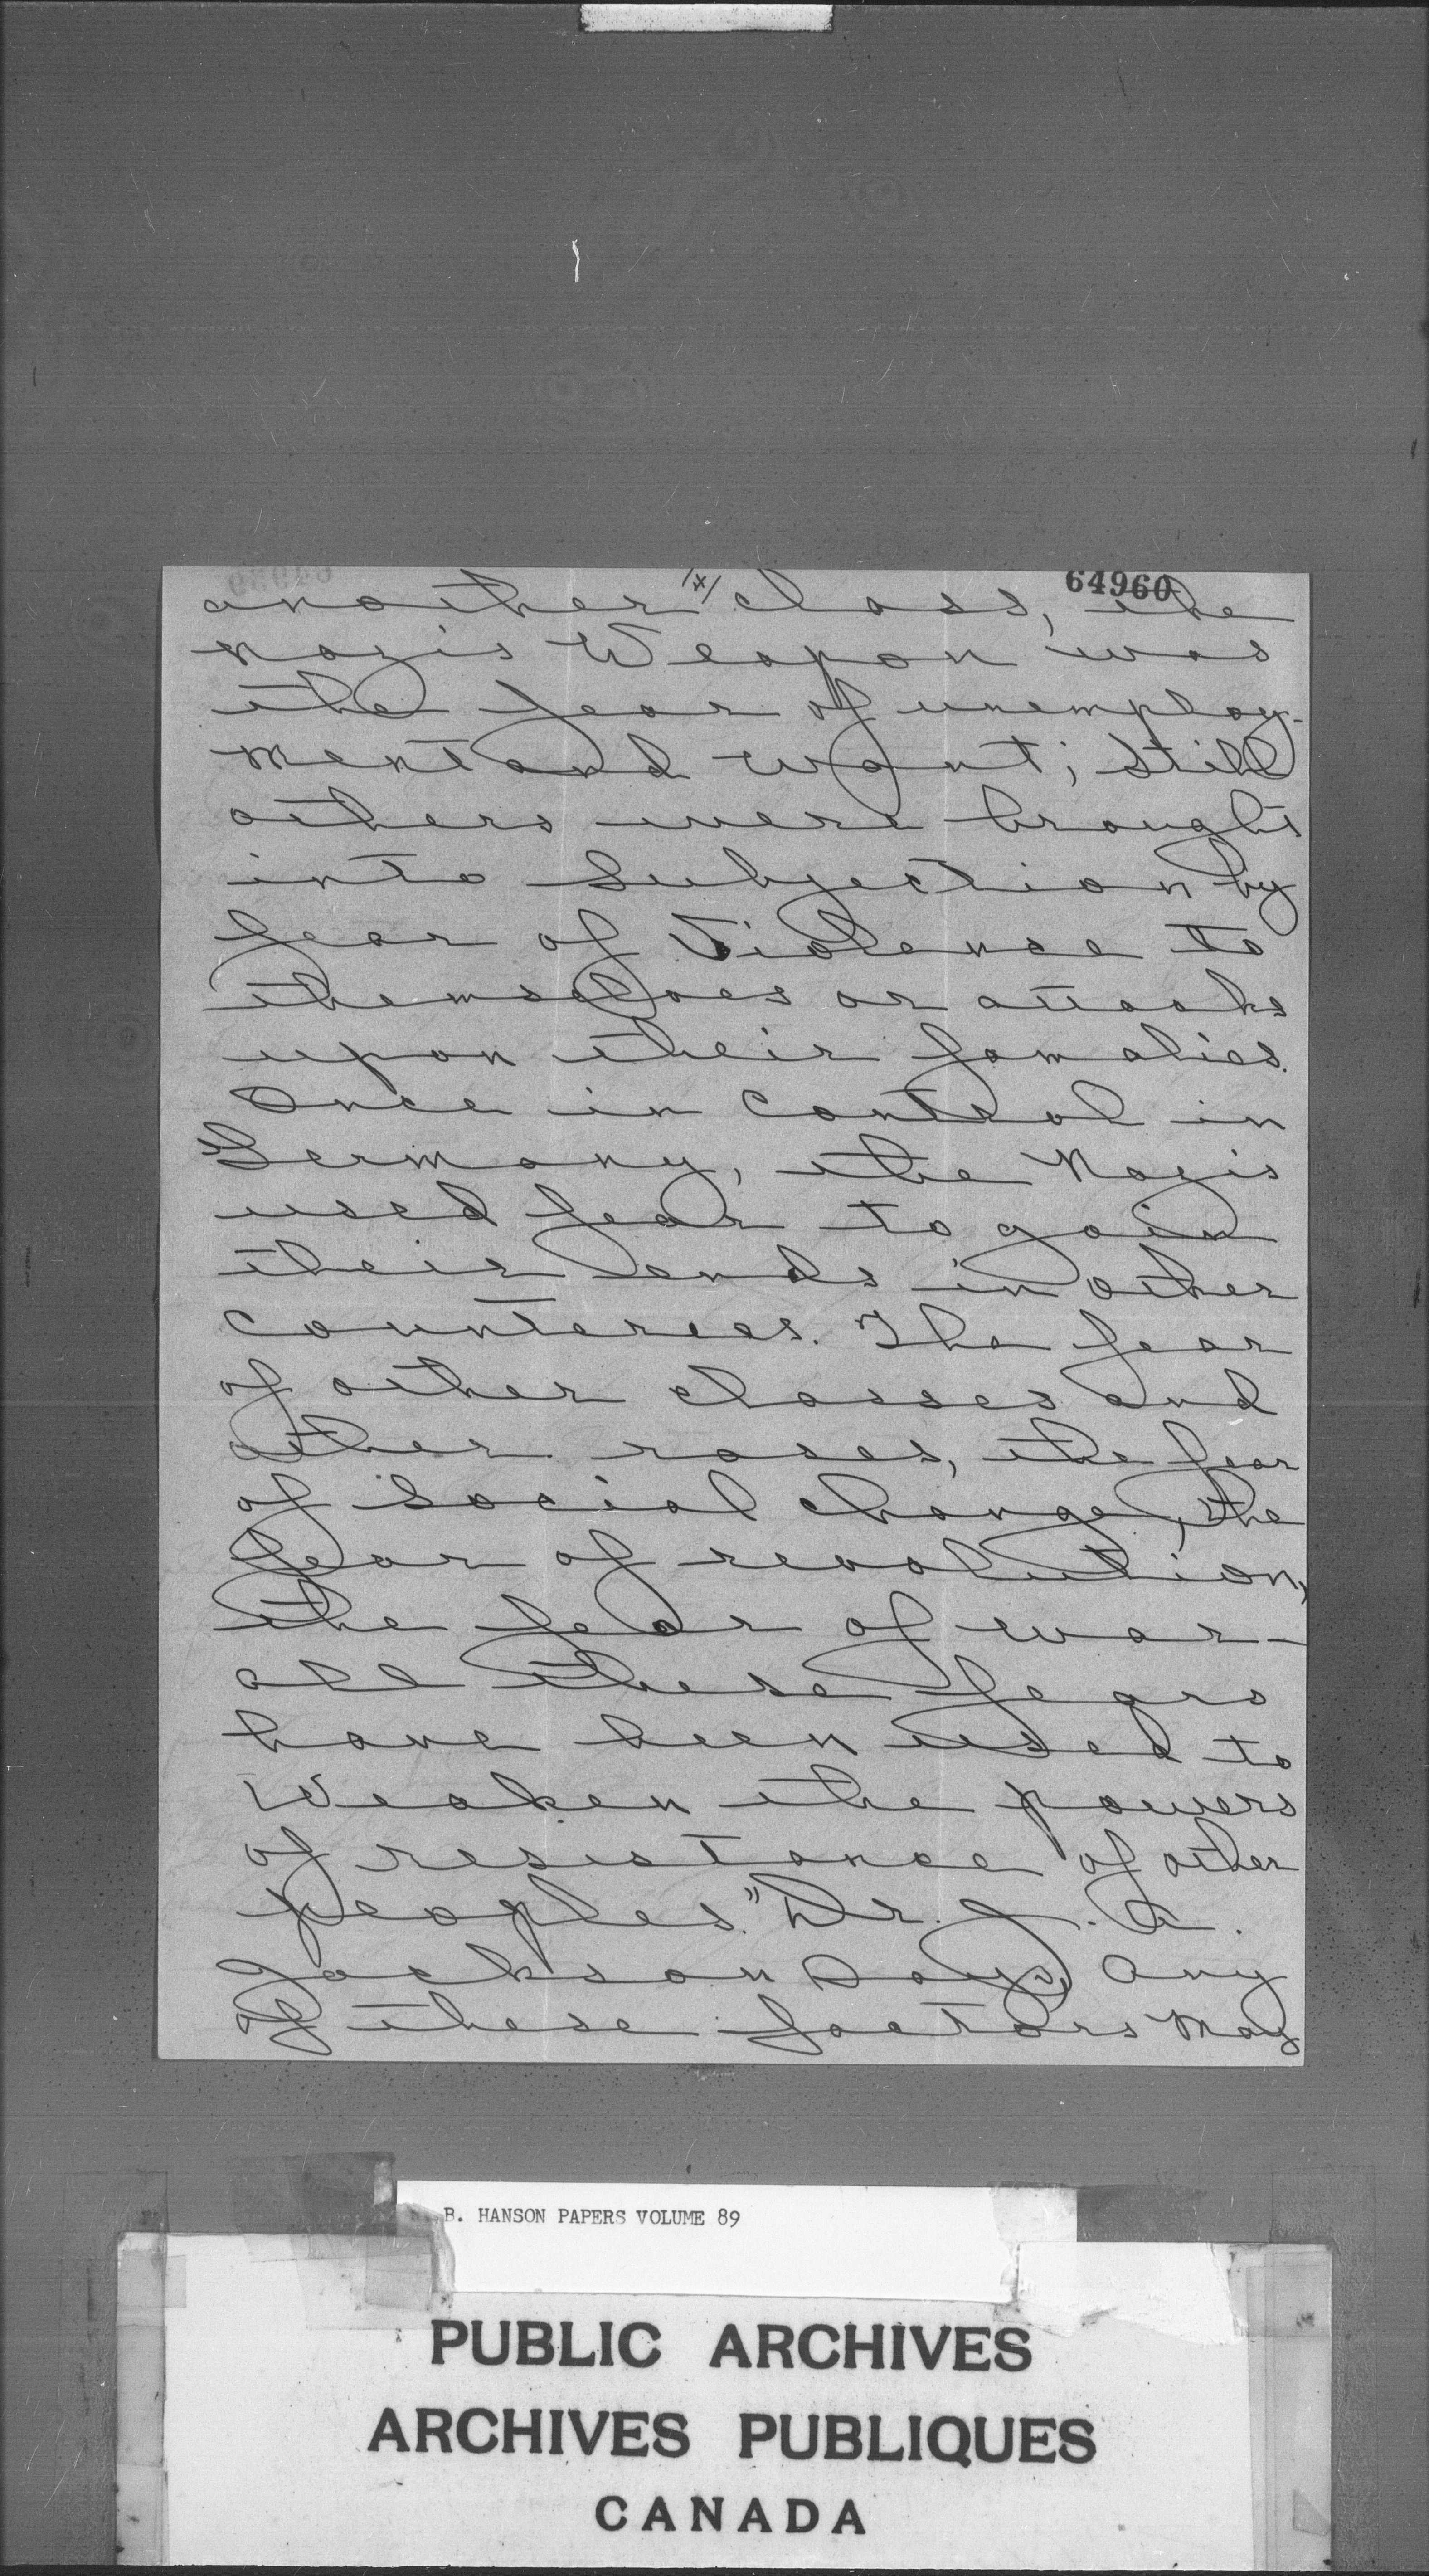 64960
another class, the
nazis Weapon was
the fear of unemploy-
ment and want; still
others were brought
into Subjection by
fear of Violence to
themselves or attacks
upon their famalies.
Once in Control in
Germany, the Nazis
used fear to gain
their ends in other
counterees. The fear
of other classes and
other races, the fear
of Social change, the
fear of revolution,
the fear of war-
all these fears
have been used to
Weaken the powers
of resistance of other
peoples." Dr. J. A.
Jackson Says, Any
of these factors may
B. HANSON PAPERS VOLUME 89
PUBLIC ARCHIVES
ARCHIVES PUBLIQUES
CANADA